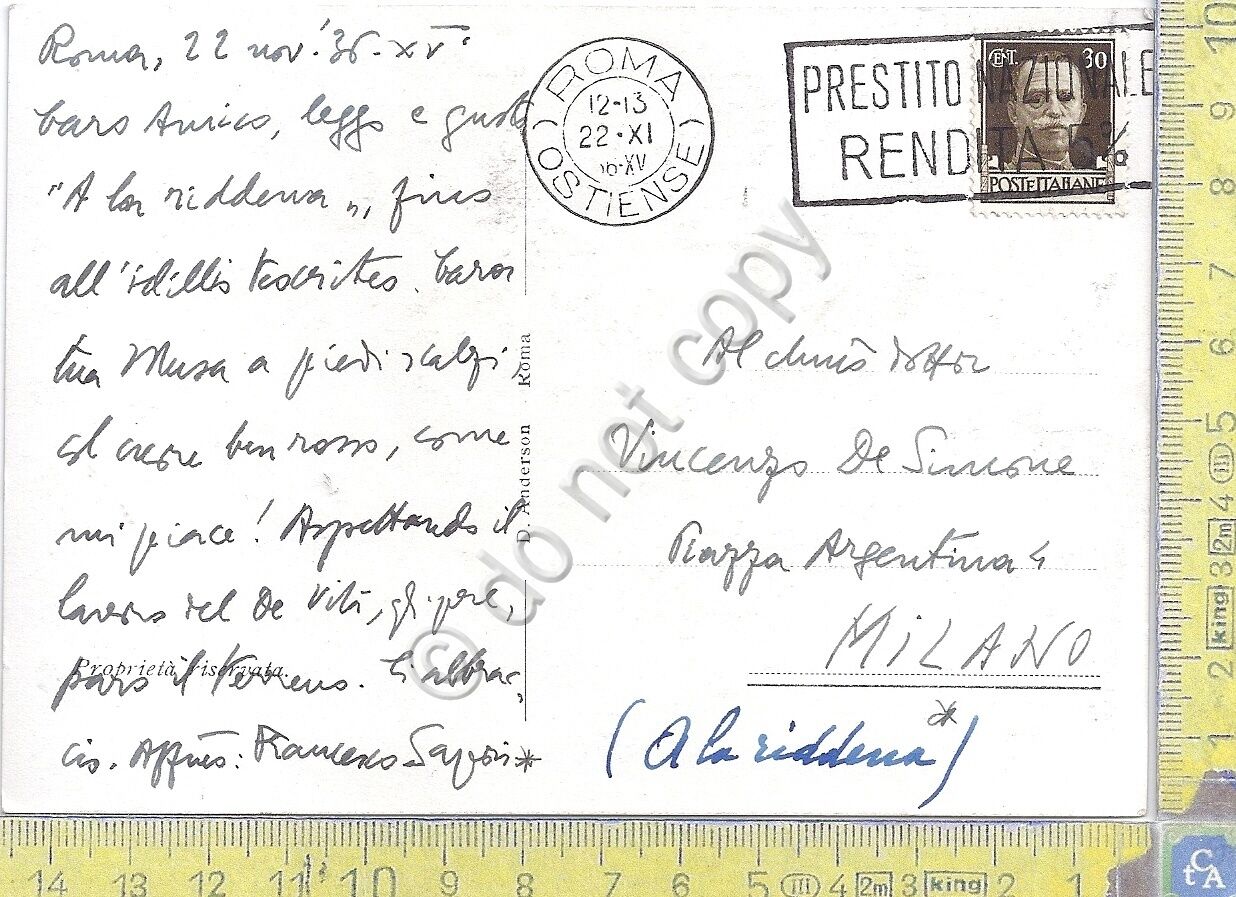 Roma, 22 nov. '36-XV°
Caro Amico, leggo e gusto
"A la riddena„, fino
all'idillio teocriteo. Cara
tua Musa a piedi scalzi,
col cuore ben rosso, come
mi piace! Aspettando il
lavoro del De Vita, gli
paro il terreno. Ti abbrac-
cio. Aff.mo: Francesco Sapori *
Proprietà riservata.
D. Anderson Roma
ROMA
(OSTIENSE)
12-13
22·XI
36-XV
PRESTITO NAZIONALE
RENDITA 5%
CENT. 30
POSTE ITALIANE
Al chmo dottor
Vincenzo De Simone
Piazza Argentina 4
MILANO
(A la riddena *)
© do not copy
10 9 8 7 6 5 III 4 2m 3 king 2 1
14 13 12 11 10 9 8 7 6 5 III 4 2m 3 king 2 1
CtA